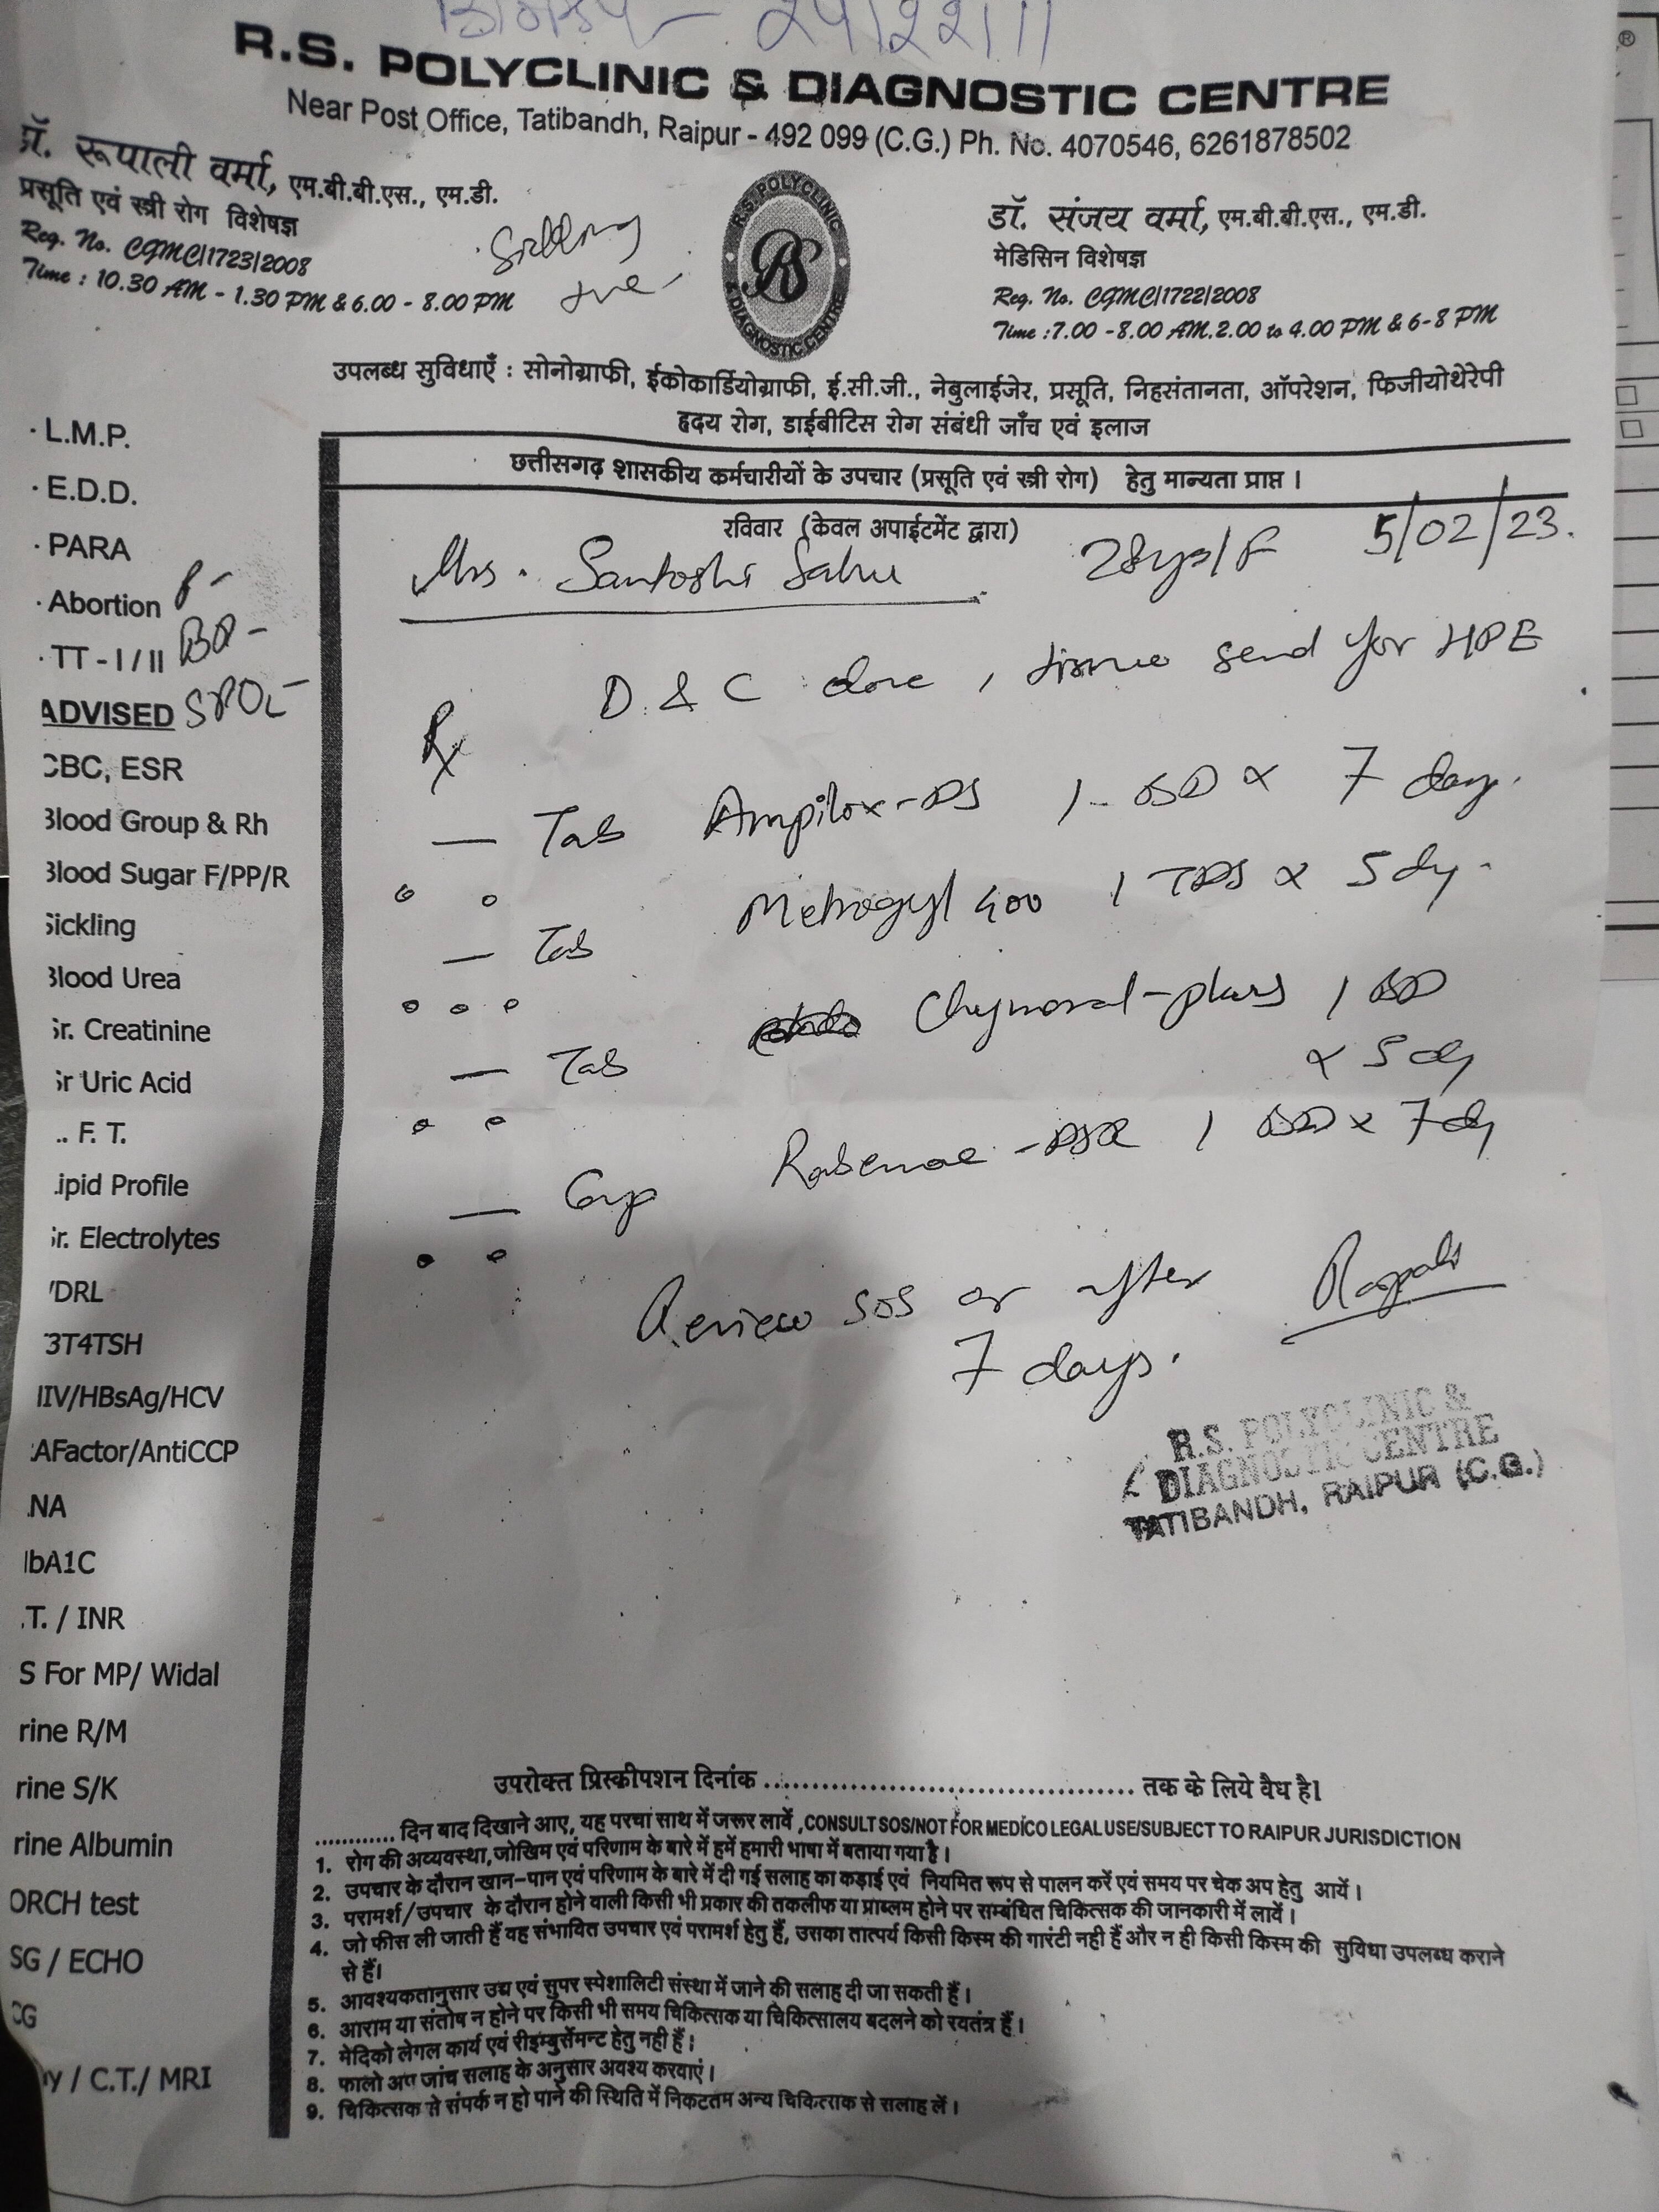 R.S. POLYCLINIC & DIAGNOSTIC CENTRE
Near Post Office, Tatibandh, Raipur - 492 099 (C.G.) Ph. No. 4070546, 6261878502
प्रॅ. रूपाली वर्मा, एम.बी.बी.एस., एम.डी.
प्रसूति एवं स्त्री रोग विशेषज्ञ
Reg. No. CGMC/1723/2008
Time : 10.30 AM - 1.30 PM & 6.00 - 8.00 PM
Sickling
+ve
R.S. POLYCLINIC
RS
& DIAGNOSTIC CENTRE
डॉ. संजय वर्मा, एम.बी.बी.एस., एम.डी.
मेडिसिन विशेषज्ञ
Reg. No. CGMC/1722/2008
Time :7.00 -8.00 AM.2.00 to 4.00 PM & 6-8 PM
उपलब्ध सुविधाएँ : सोनोग्राफी, ईकोकार्डियोग्राफी, ई.सी.जी., नेबुलाईजेर, प्रसूति, निहसंतानता, ऑपरेशन, फिजीयोथेरेपी
हृदय रोग, डाईबीटिस रोग संबंधी जाँच एवं इलाज
छत्तीसगढ़ शासकीय कर्मचारीयों के उपचार (प्रसूति एवं स्त्री रोग) हेतु मान्यता प्राप्त ।
रविवार (केवल अपाईटमेंट द्वारा)
Mrs. Santoshi Sahu 28yrs/F 5/02/23.
D & C done, tissue send for HPE
Rx
— Tab Ampilox-DS 1 - BD x 7 days.
— Tab Metrogyl 400 1 TDS x 5 dy.
— Tab Chymoral-plus 1 BD
x 5 dy
— Cap -DSR 1 BD x 7 dy
Review SOS or after
7 days.
R.S. POLYCLINIC &
DIAGNOSTIC CENTRE
TATIBANDH, RAIPUR (C.G.)
· L.M.P.
· E.D.D.
· PARA
· Abortion P -
· TT - I / II BP -
ADVISED SPO2 -
CBC, ESR
Blood Group & Rh
Blood Sugar F/PP/R
Sickling
Blood Urea
Sr. Creatinine
Sr Uric Acid
. F. T.
ipid Profile
Sr. Electrolytes
VDRL
3T4TSH
HIV/HBsAg/HCV
AFactor/AntiCCP
NA
bA1C
.T. / INR
S For MP/ Widal
rine R/M
rine S/K
rine Albumin
ORCH test
SG / ECHO
CG
y / C.T./ MRI
उपरोक्त प्रिस्क्रीपशन दिनांक .......................................... तक के लिये वैध है।
............ दिन बाद दिखाने आए, यह परचा साथ में जरूर लावें ,CONSULT SOS/NOT FOR MEDICO LEGAL USE/SUBJECT TO RAIPUR JURISDICTION
1. रोग की अव्यवस्था,जोखिम एवं परिणाम के बारे में हमें हमारी भाषा में बताया गया है ।
2. उपचार के दौरान खान-पान एवं परिणाम के बारे में दी गई सलाह का कड़ाई एवं नियमित रूप से पालन करें एवं समय पर चेक अप हेतु आयें ।
3. परामर्श/उपचार के दौरान होने वाली किसी भी प्रकार की तकलीफ या प्राब्लम होने पर सम्बंधित चिकित्सक की जानकारी में लावें ।
4. जो फीस ली जाती हैं वह संभावित उपचार एवं परामर्श हेतु हैं, उसका तात्पर्य किसी किस्म की गारंटी नही हैं और न ही किसी किस्म की सुविधा उपलब्ध कराने
से हैं।
5. आवश्यकतानुसार उच्च एवं सुपर स्पेशालिटी संस्था में जाने की सलाह दी जा सकती हैं ।
6. आराम या संतोष न होने पर किसी भी समय चिकित्सक या चिकित्सालय बदलने को स्वतंत्र हैं ।
7. मेदिको लेगल कार्य एवं रीइम्बुर्सेमन्ट हेतु नही हैं ।
8. फालो अप जांच सलाह के अनुसार अवश्य करवाएं ।
9. चिकित्सक से संपर्क न हो पाने की स्थिति में निकटतम अन्य चिकित्सक से सलाह लें ।